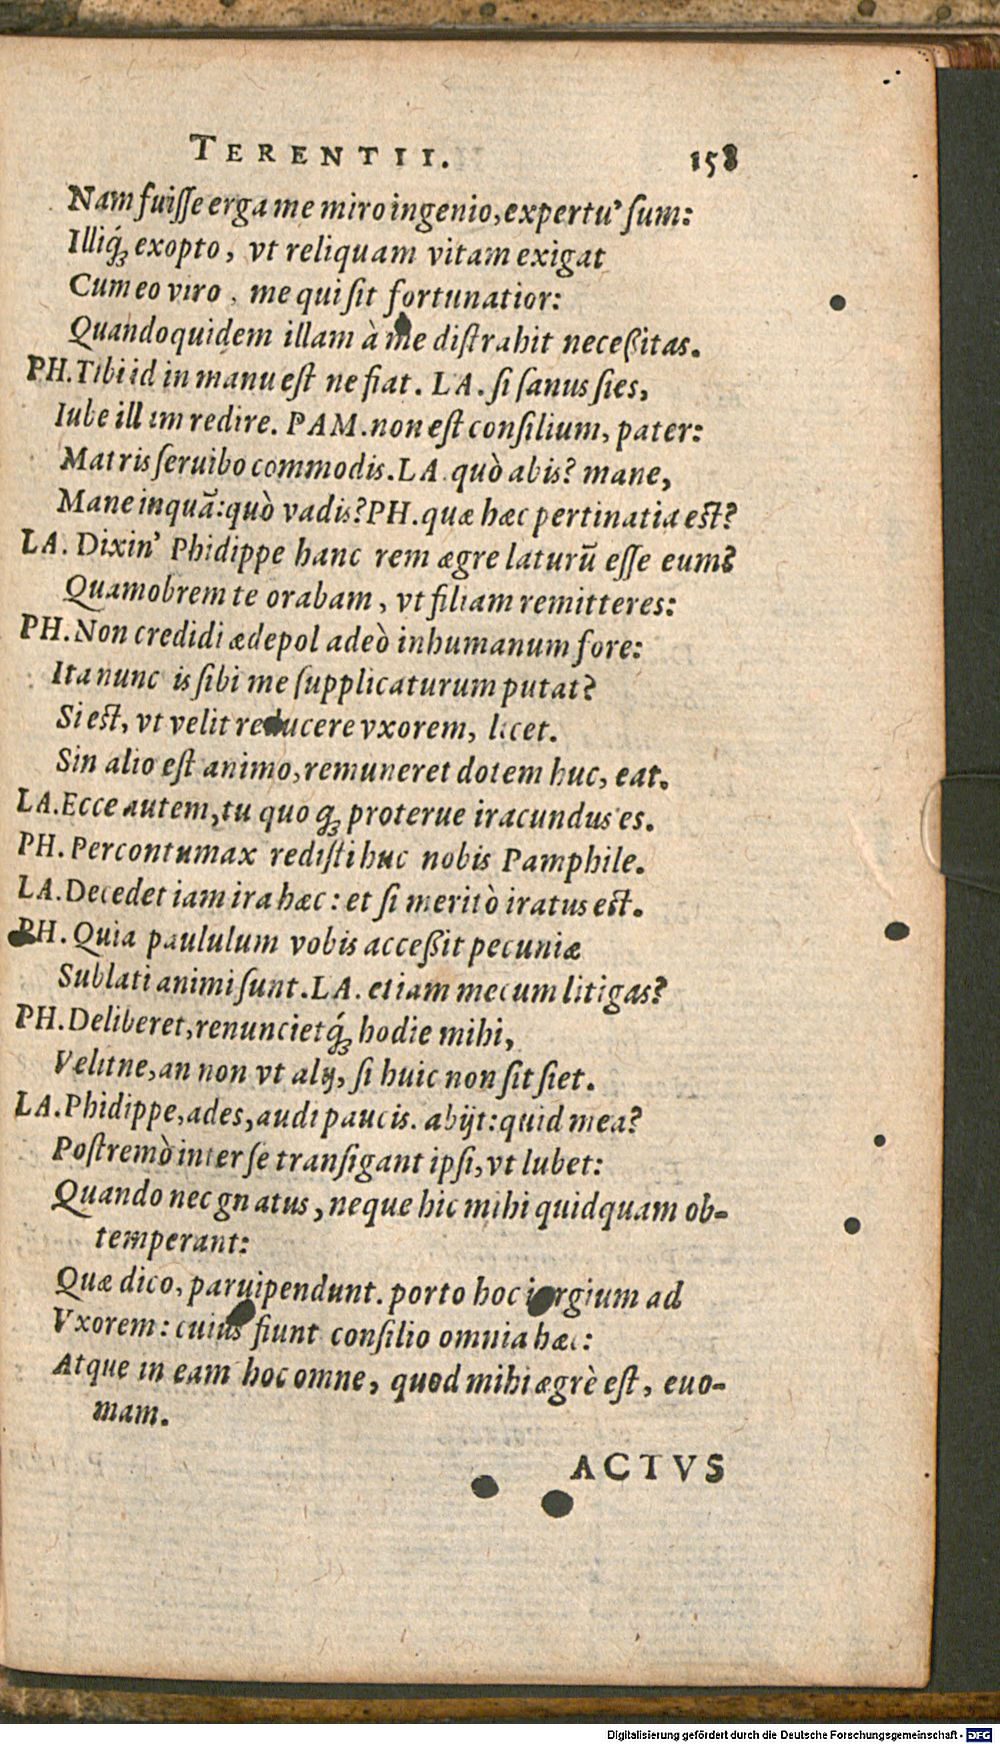 TERENTII. 158
Nam fuiſſe erga me miro ingenio, expertu' ſum:
Illiq́ꝫ exopto, vt reliquam vitam exigat
Cum eo viro, me qui ſit fortunatior:
Quandoquidem illam à me diſtrahit neceßitas.
PH. Tibi id in manu eſt ne fiat. LA. ſi ſanus ſies,
Iube illam redire. PAM. non eſt conſilium, pater:
Matris ſeruibo commodis. LA. quò abis? mane,
Mane inquã: quò vadis? PH. quæ hæc pertinatia eſt?
LA. Dixin' Phidippe hanc rem ægre laturũ eſſe eum?
Quamobrem te orabam, vt filiam remitteres:
PH. Non credidi ædepol adeò inhumanum fore:
Ita nunc is ſibi me ſupplicaturum putat?
Si eſt, vt velit reducere vxorem, licet.
Sin alio eſt animo, remuneret dotem huc, eat.
LA. Ecce autem, tu quoqꝫ proterue iracundus es.
PH. Percontumax rediſti huc nobis Pamphile.
LA. Decedet iam ira hæc: et ſi meritò iratus eſt.
PH. Quia paululum vobis acceßit pecuniæ
Sublati animi ſunt. LA. etiam mecum litigas?
PH. Deliberet, renuncietq́ꝫ hodie mihi,
Velitne, an non vt alij, ſi huic non ſit ſiet.
LA. Phidippe, ades, audi paucis. abijt: quid mea?
Poſtremò inter ſe tranſigant ipſi, vt lubet:
Quando nec gnatus, neque hic mihi quidquam ob-
temperant:
Quæ dico, paruipendunt. porto hoc iurgium ad
Vxorem: cuius fiunt conſilio omnia hæc:
Atque in eam hoc omne, quod mihi ægrè eſt, euo-
mam.
ACTVS
Digitalisierung gefördert durch die Deutsche Forschungsgemeinschaft - DFG